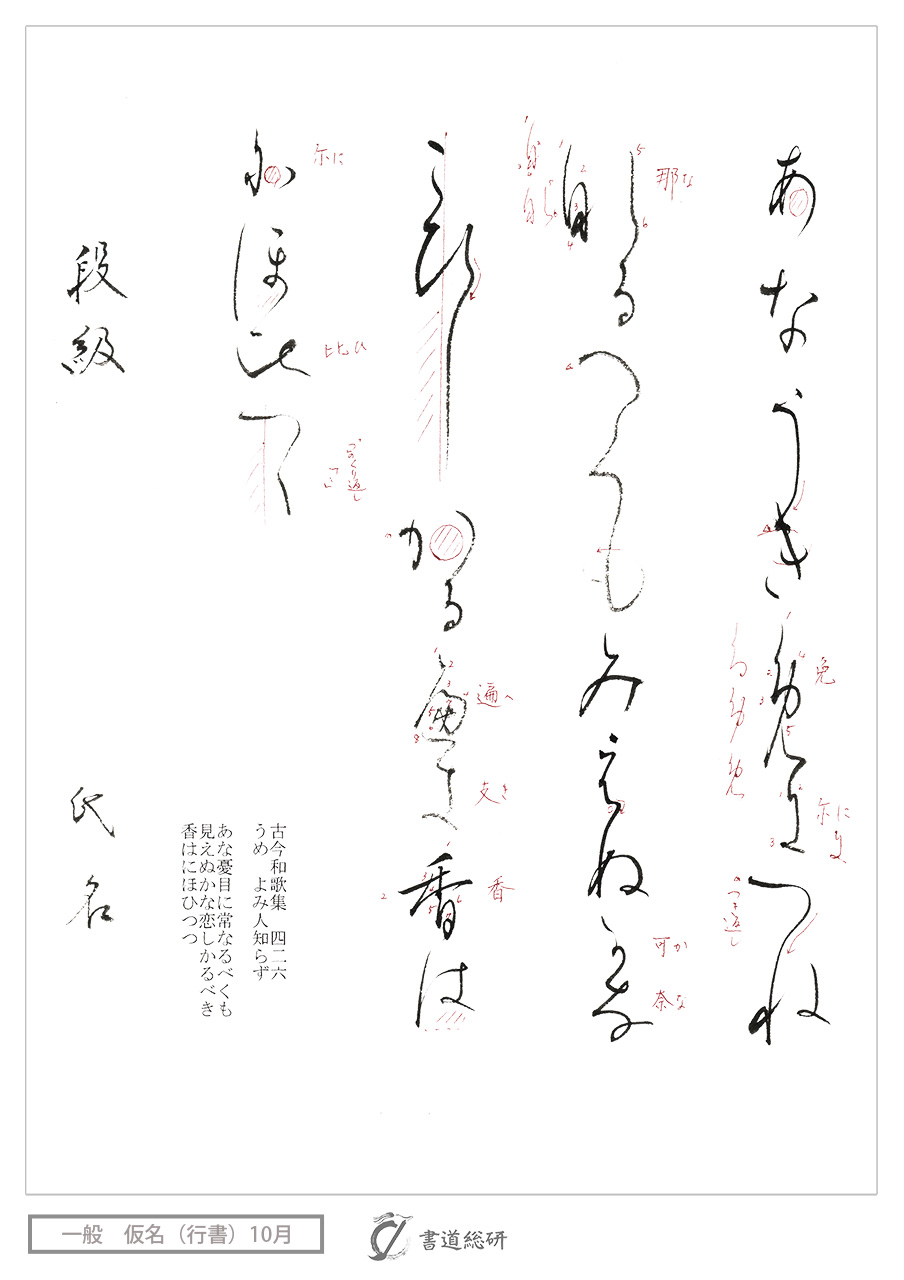 あなうき免尓つね
那るへくもみえぬ可奈
こひしかる遍支香は
尓ほ比つゝ
段級
氏名
免
尓に
つき返し
那な
可か
奈な
遍へ
支き
香
尓に
比ひ
古今和歌集 四二六
うめ よみ人知らず
あな憂目に常なるべくも
見えぬかな恋しかるべき
香はにほひつつ
一般 仮名(行書)10月
書道総研